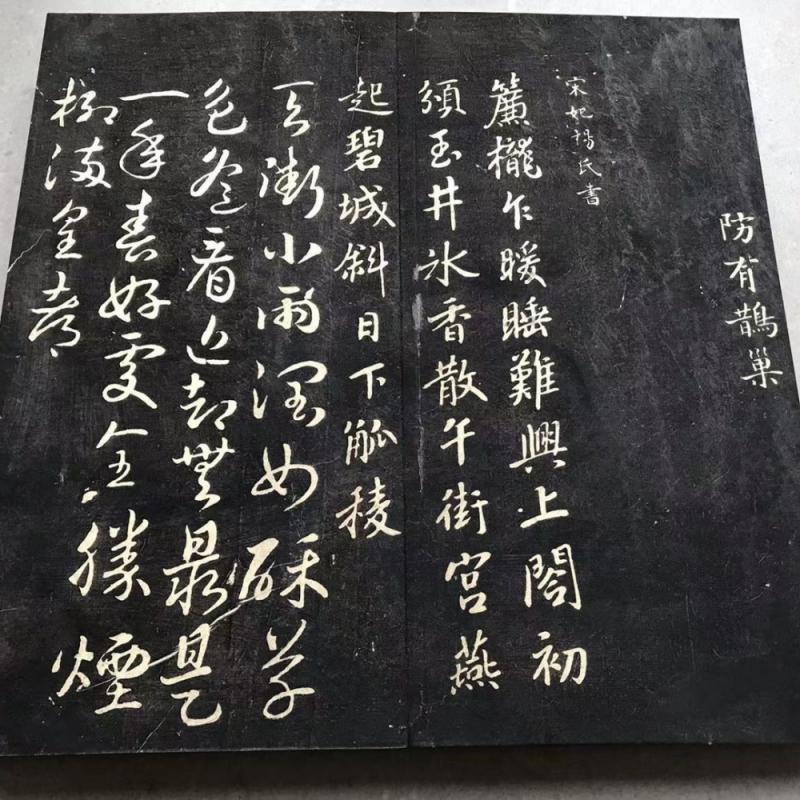 防有鵲巢
宋妃楊氏書
簾櫳乍暖睡難興上閤初
頒玉井氷香散午街宮燕
起碧城斜日下觚稜
天街小雨潤如酥草
色遙看近却無最是
一年春好處全勝煙
柳滿皇都